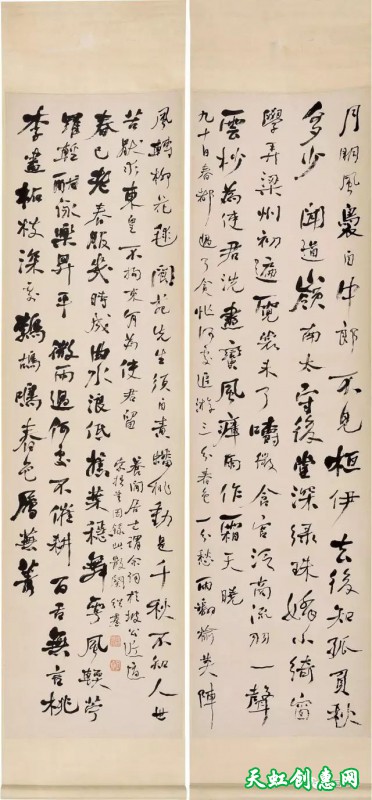 月明風裊自中郎不見桓伊去後知孤負秋
多少聞道嶺南太守後堂深綠珠嬌小綺窗
學弄梁州初遍霓裳未了嚼徵含宮泛商流羽一聲
雲杪為使君洗盡蠻風瘴雨作霜天曉
九十日春都過了貪忙何處追游三分春色一分愁雨翻榆莢陣
風轉柳花毬閬苑先生須自責蟠桃動是千秋不知人世
苦厭求東皇不拘束肯為使君留
春已老春服幾時成曲水浪低蕉葉穩舞雩風軟苧
羅輕酣詠樂昇平微雨過何處不催耕百舌無言桃
李盡柘枝深處鵓鴣鳴春色屬蕪菁
天虹创惠网